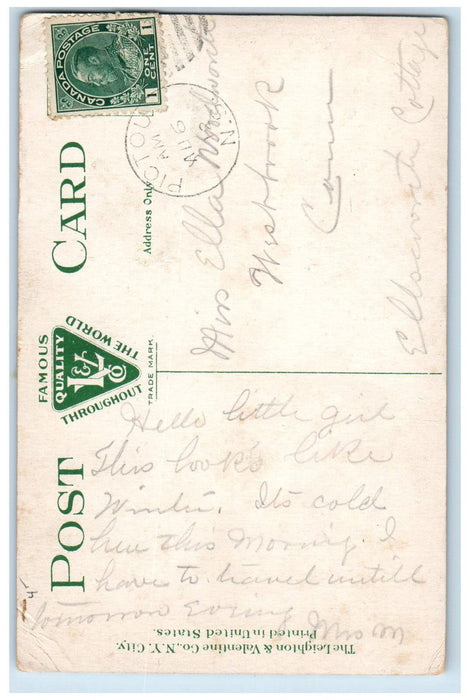 POST CARD
FAMOUS
QUALITY
L&V Co
THROUGHOUT
THE WORLD
TRADE MARK
Address Only
CANADA POSTAGE
1 ONE CENT 1
PICTOU
AM
AU 6
N.S.
Miss Ella
Westbrook
Conn
Ellsworth Cottage
Hello little girl
This look's like
Winter. Its cold
here this Morning. I
have to travel untill
tomorrow Evening
Mrs M
The Leighton & Valentine Co., N.Y. City.
Printed in United States.